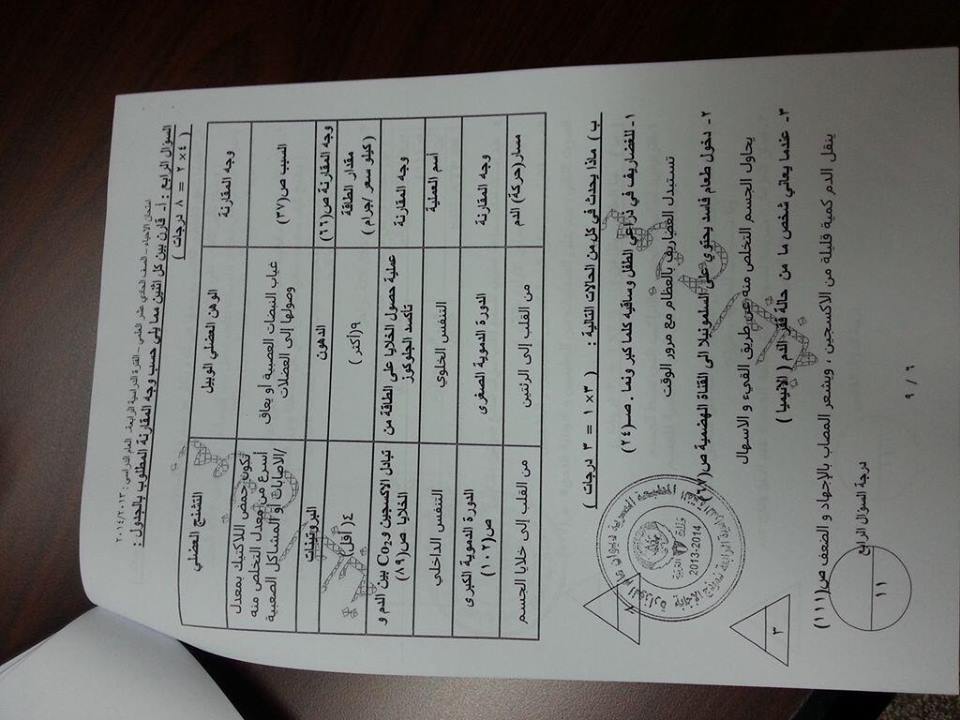 امتحان الأحياء – الصف الحادي عشر العلمي – الفترة الدراسية الرابعة. العام الدراسي : ٢٠١٤/٢٠١٣
السؤال الرابع : أ- قارن بين كل اثنين مما يلي حسب وجه المقارنة المطلوب بالجدول :
( ٤× ٢ = ٨ درجات )
وجه المقارنة
الوهن العضلي الوبيل
التشنج العضلي
السبب ص(٣٧)
غياب النبضات العصبية أو يعاق
وصولها إلى العضلات
تكون حمض اللاكتيك بمعدل
أسرع من معدل التخلص منه
/الاصابات او المشاكل العصبية
وجه المقارنة ص(٦٦)
الدهون
البروتينات
مقدار الطاقة
(كيلو سعر /جرام )
٩(أكثر)
٤( أقل)
وجه المقارنة
عملية حصول الخلايا على الطاقة من
تأكسد الجلوكوز
تبادل الاكسجين و Co2 بين الدم و
الخلايا ص(٨٩)
أسم العملية
التنفس الخلوي
التنفس الداخلي
وجه المقارنة
الدورة الدموية الصغرى
الدورة الدموية الكبرى
ص(١٠٢)
مسار(حركة) الدم
من القلب إلى الرئتين
من القلب إلى خلايا الجسم
ب ) ماذا يحدث في كل من الحالات التالية : ( ٣× ١ = ٣ درجات )
١- للغضاريف في ذراعي الطفل وساقيه كلما كبر ونما . صـ(٢٤)
تستبدل الغضاريف بالعظام مع مرور الوقت
٢- دخول طعام فاسد يحتوي على السلمونيلا الى القناة الهضمية ص(
يحاول الجسم التخلص منه عن طريق القيء و الاسهال
٣- عندما يعاني شخص ما من حالة فقر الدم ( الانيميا )
ينقل الدم كمية قليلة من الاكسجين ، ويشعر المصاب بالإجهاد و الضعف ص(١١١)
٣
درجة السؤال الرابع
١١
2013-2014
٩ / ٦